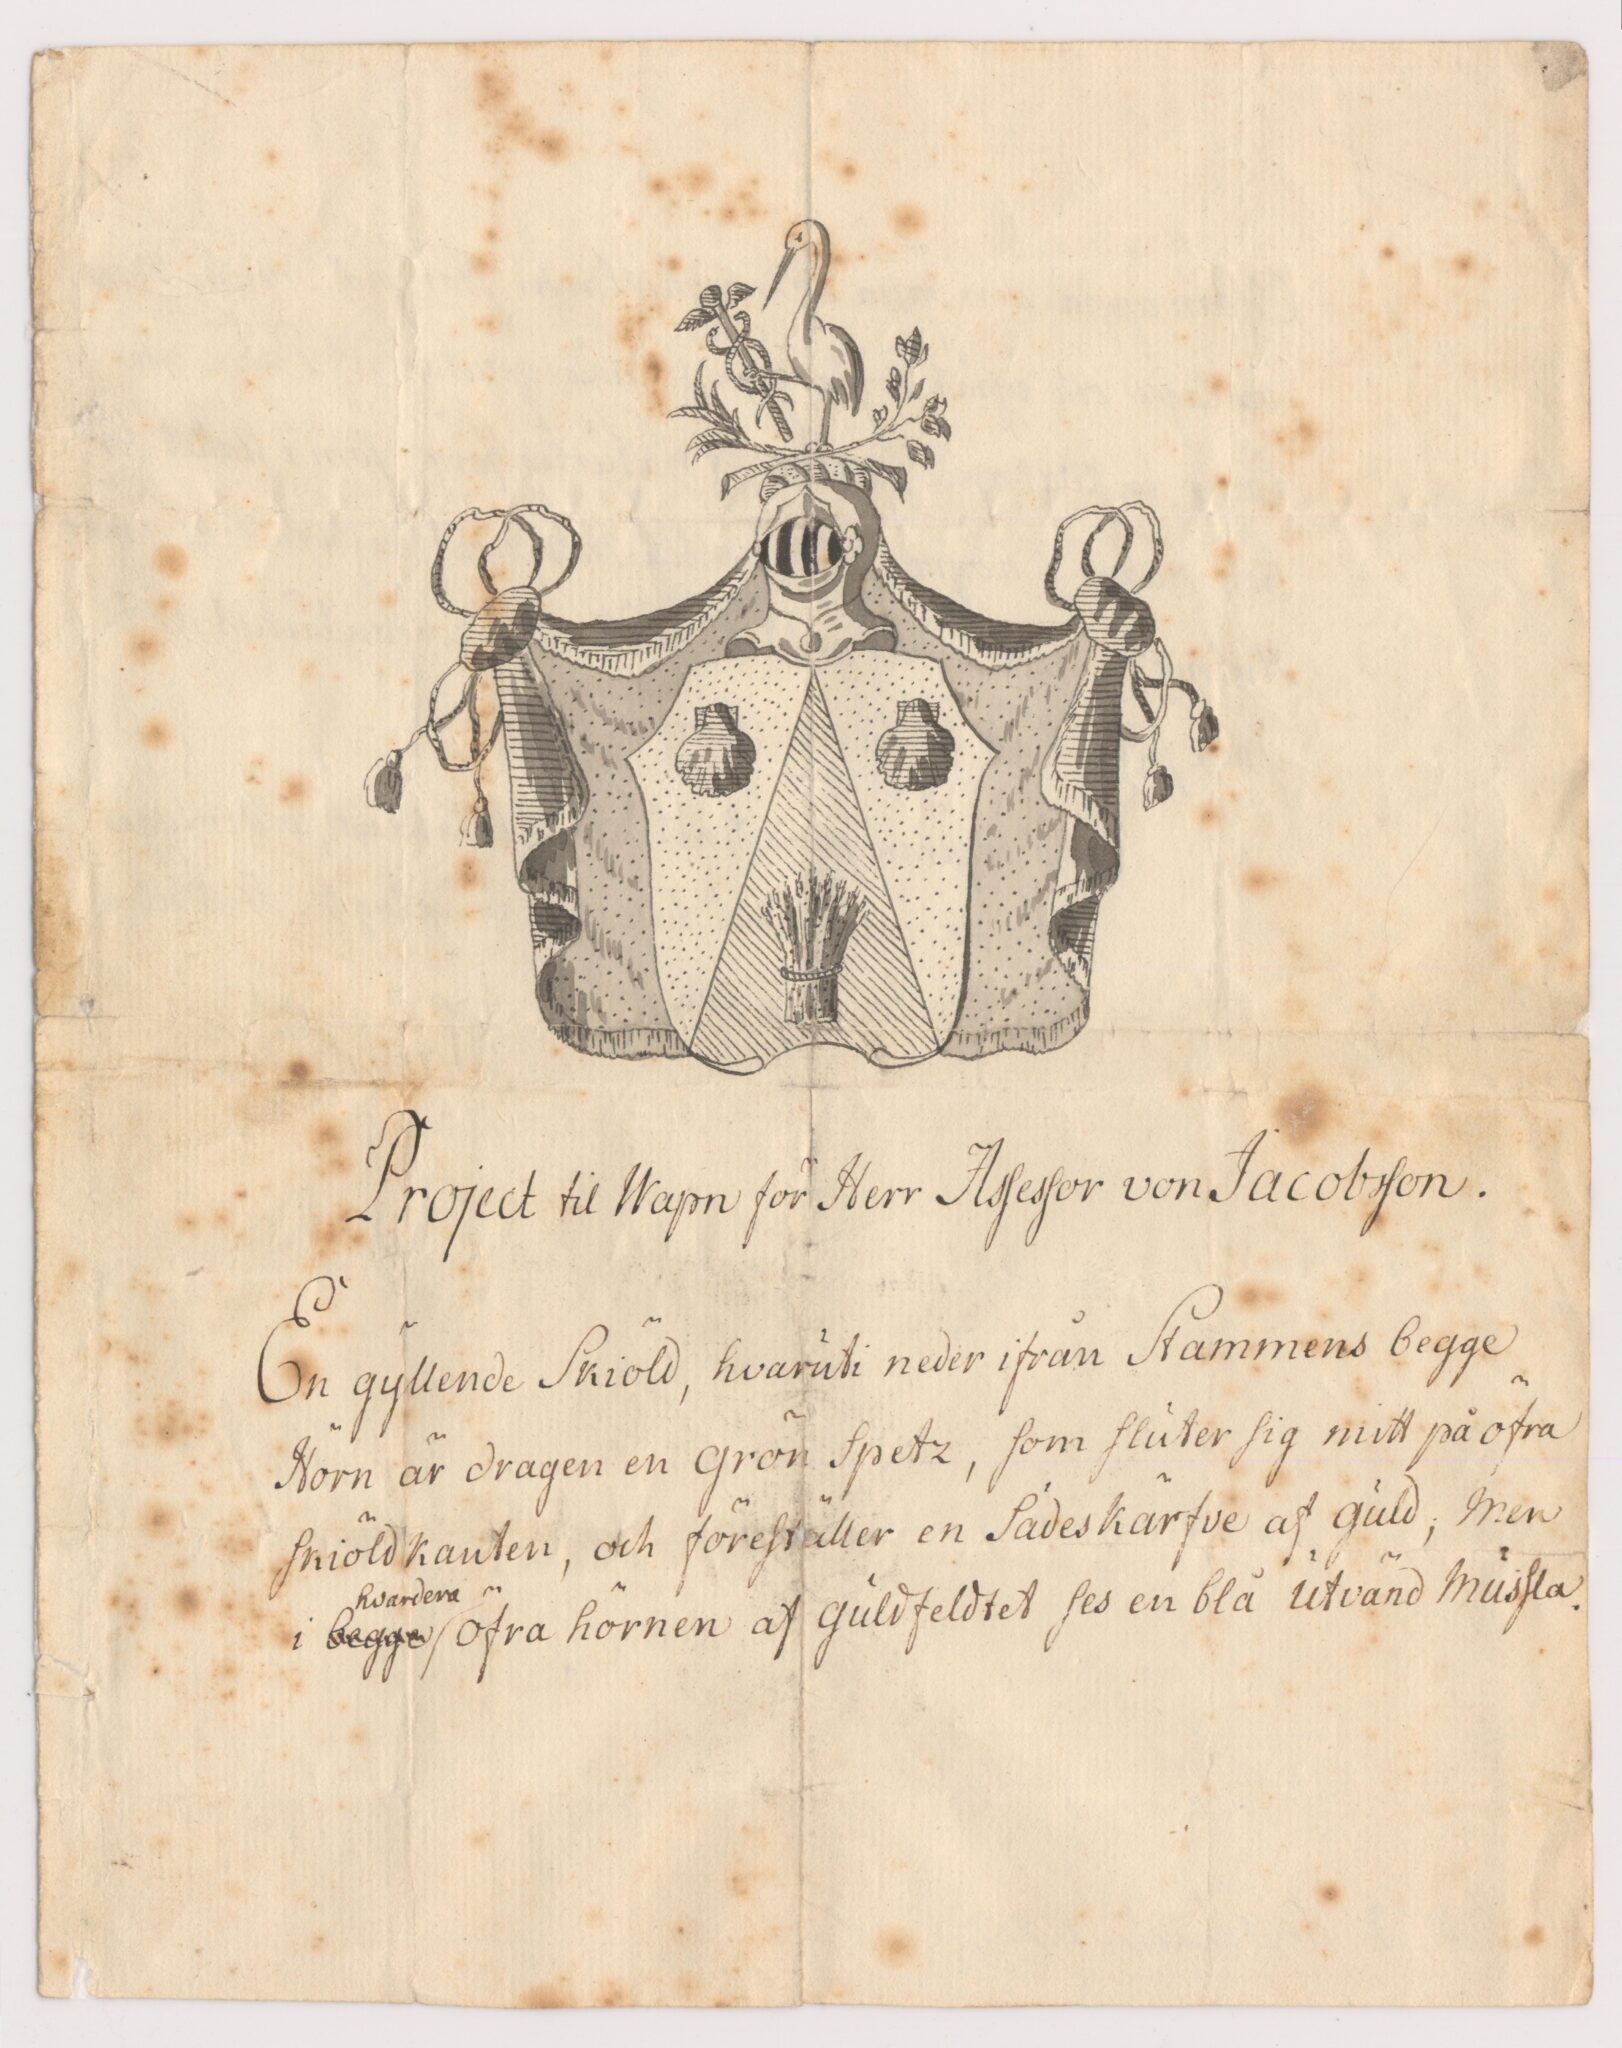 Project til Wapn för Herr Assessor von Jacobsson.
En gyllende Skiöld, hvaruti neder ifrån Stammens begge
Hörn är dragen en grön spetz, som sluter sig mitt på öfra
skiöldkanten, och föreställer en Sädeskärfve af guld; Men
hvardera
i begge öfra hörnen af guldfeldtet ses en blå utvänd Mussla.